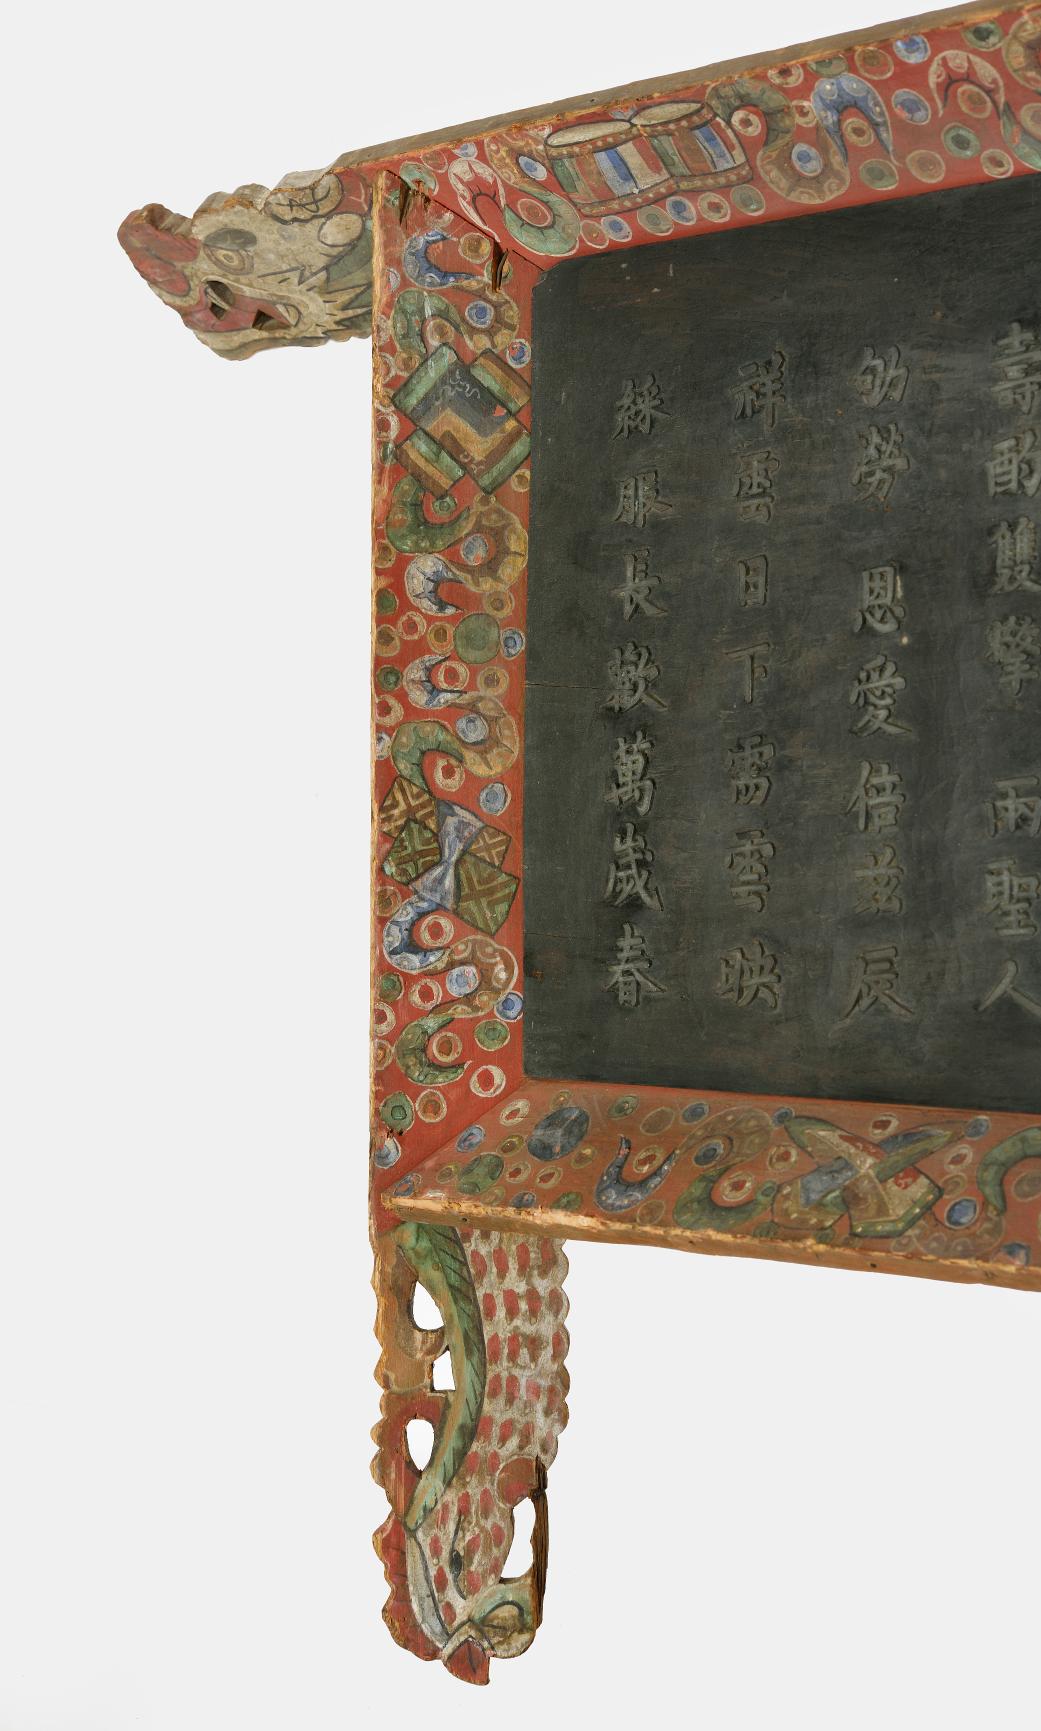 壽酌雙擎 兩聖人
劬勞 恩愛倍玆辰
祥雲日下需雲映
綵服長歡萬歲春